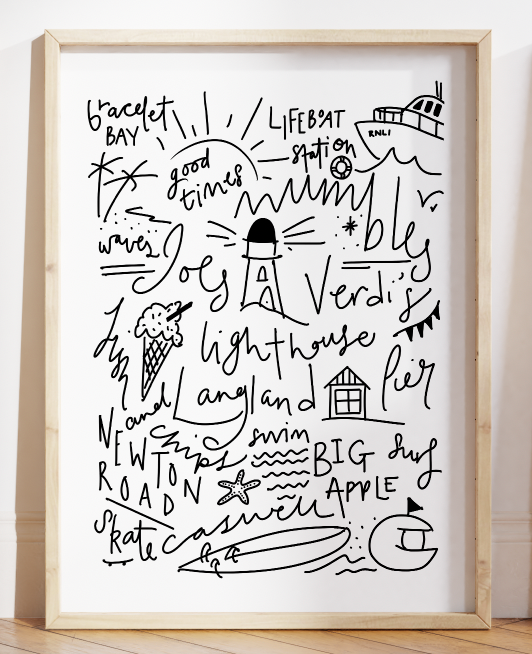 bracelet
BAY
LIFEBOAT
station
RNLI
good
times
mumbles
waves
Joes
Verdi's
lighthouse
fish
and
chips
Langland
Pier
NEWTON
ROAD
swim
BIG
APPLE
surf
skate
caswell